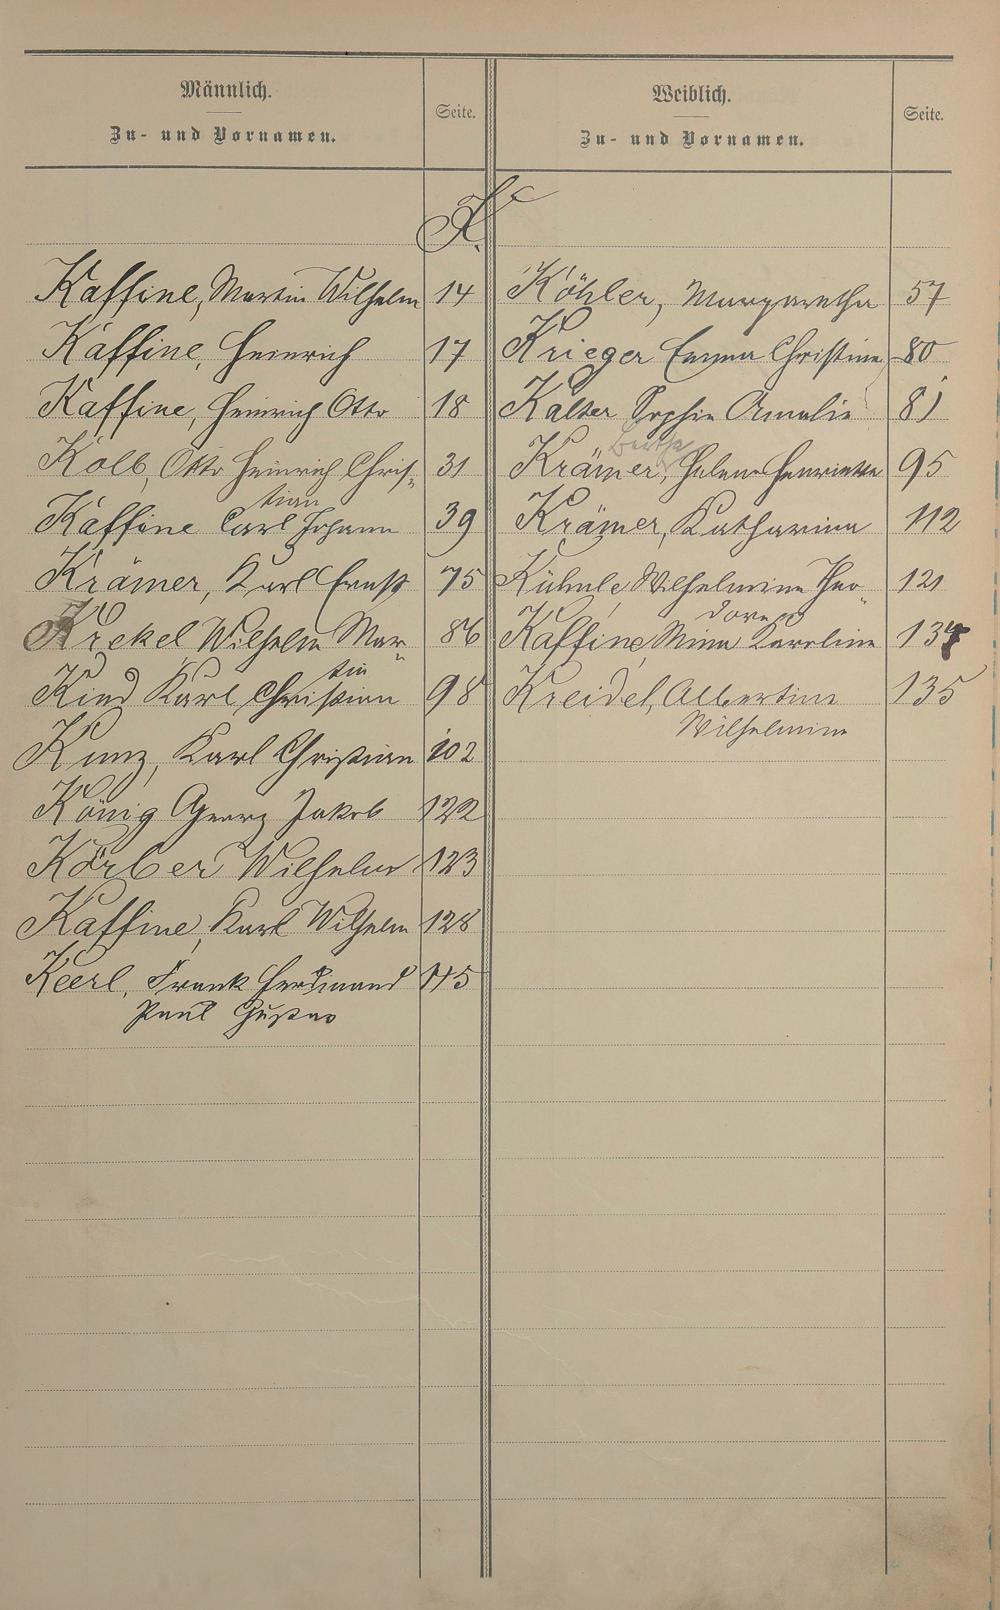 Männlich.
Zu- und Vornamen.
Seite.
Weiblich.
Zu- und Vornamen.
Seite.
K.
Kaffine, Martin Wilhelm 14
Kaffine, Heinrich 17
Kaffine, Heinrich Otto 18
Kolb, Otto Heinrich Chris- 31
tian
Kaffine Carl Johann 39
Krämer, Karl Ernst 75
Krekel Wilhelm Mar- 86
tin
Kind Karl Christian 98
Kunz, Karl Christian 102
König Georg Jakob 122
Körber Wilhelm 123
Kaffine, Karl Wilhelm 128
Keerl, Frank Ferdinand 145
Paul Gustav
Köhler, Margaretha 57
Krieger Emma Christine 80
Kalter Sophie Amalie 81
Bertha
Krämer, Helene Henriette 95
Krämer, Katharina 112
Kühnle Wilhelmine Theo- 121
dora
Kaffine, Mina Karoline 134
Kreidel, Albertine 135
Wilhelmine